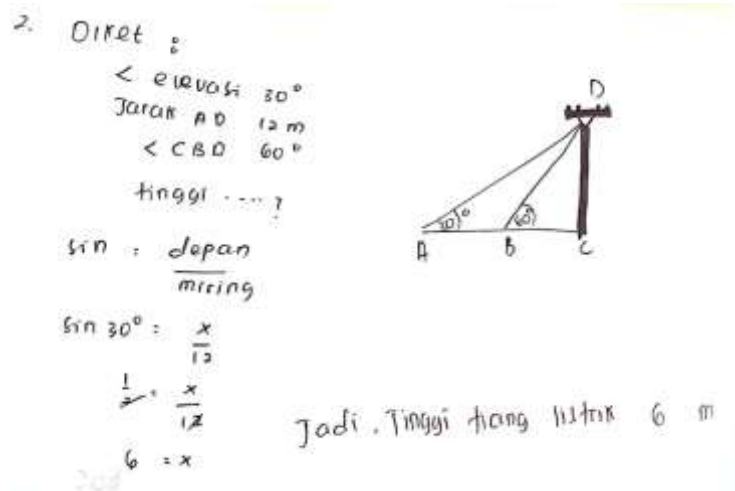 2. Diket :
< elevasi 30°
Jarak AD 12 m
< CBD 60°
tinggi .... ?
sin = depan
miring
sin 30° = x
12
1 = x
2 12
6 = x
D
30°
60°
A B C
Jadi, Tinggi tiang listrik 6 m